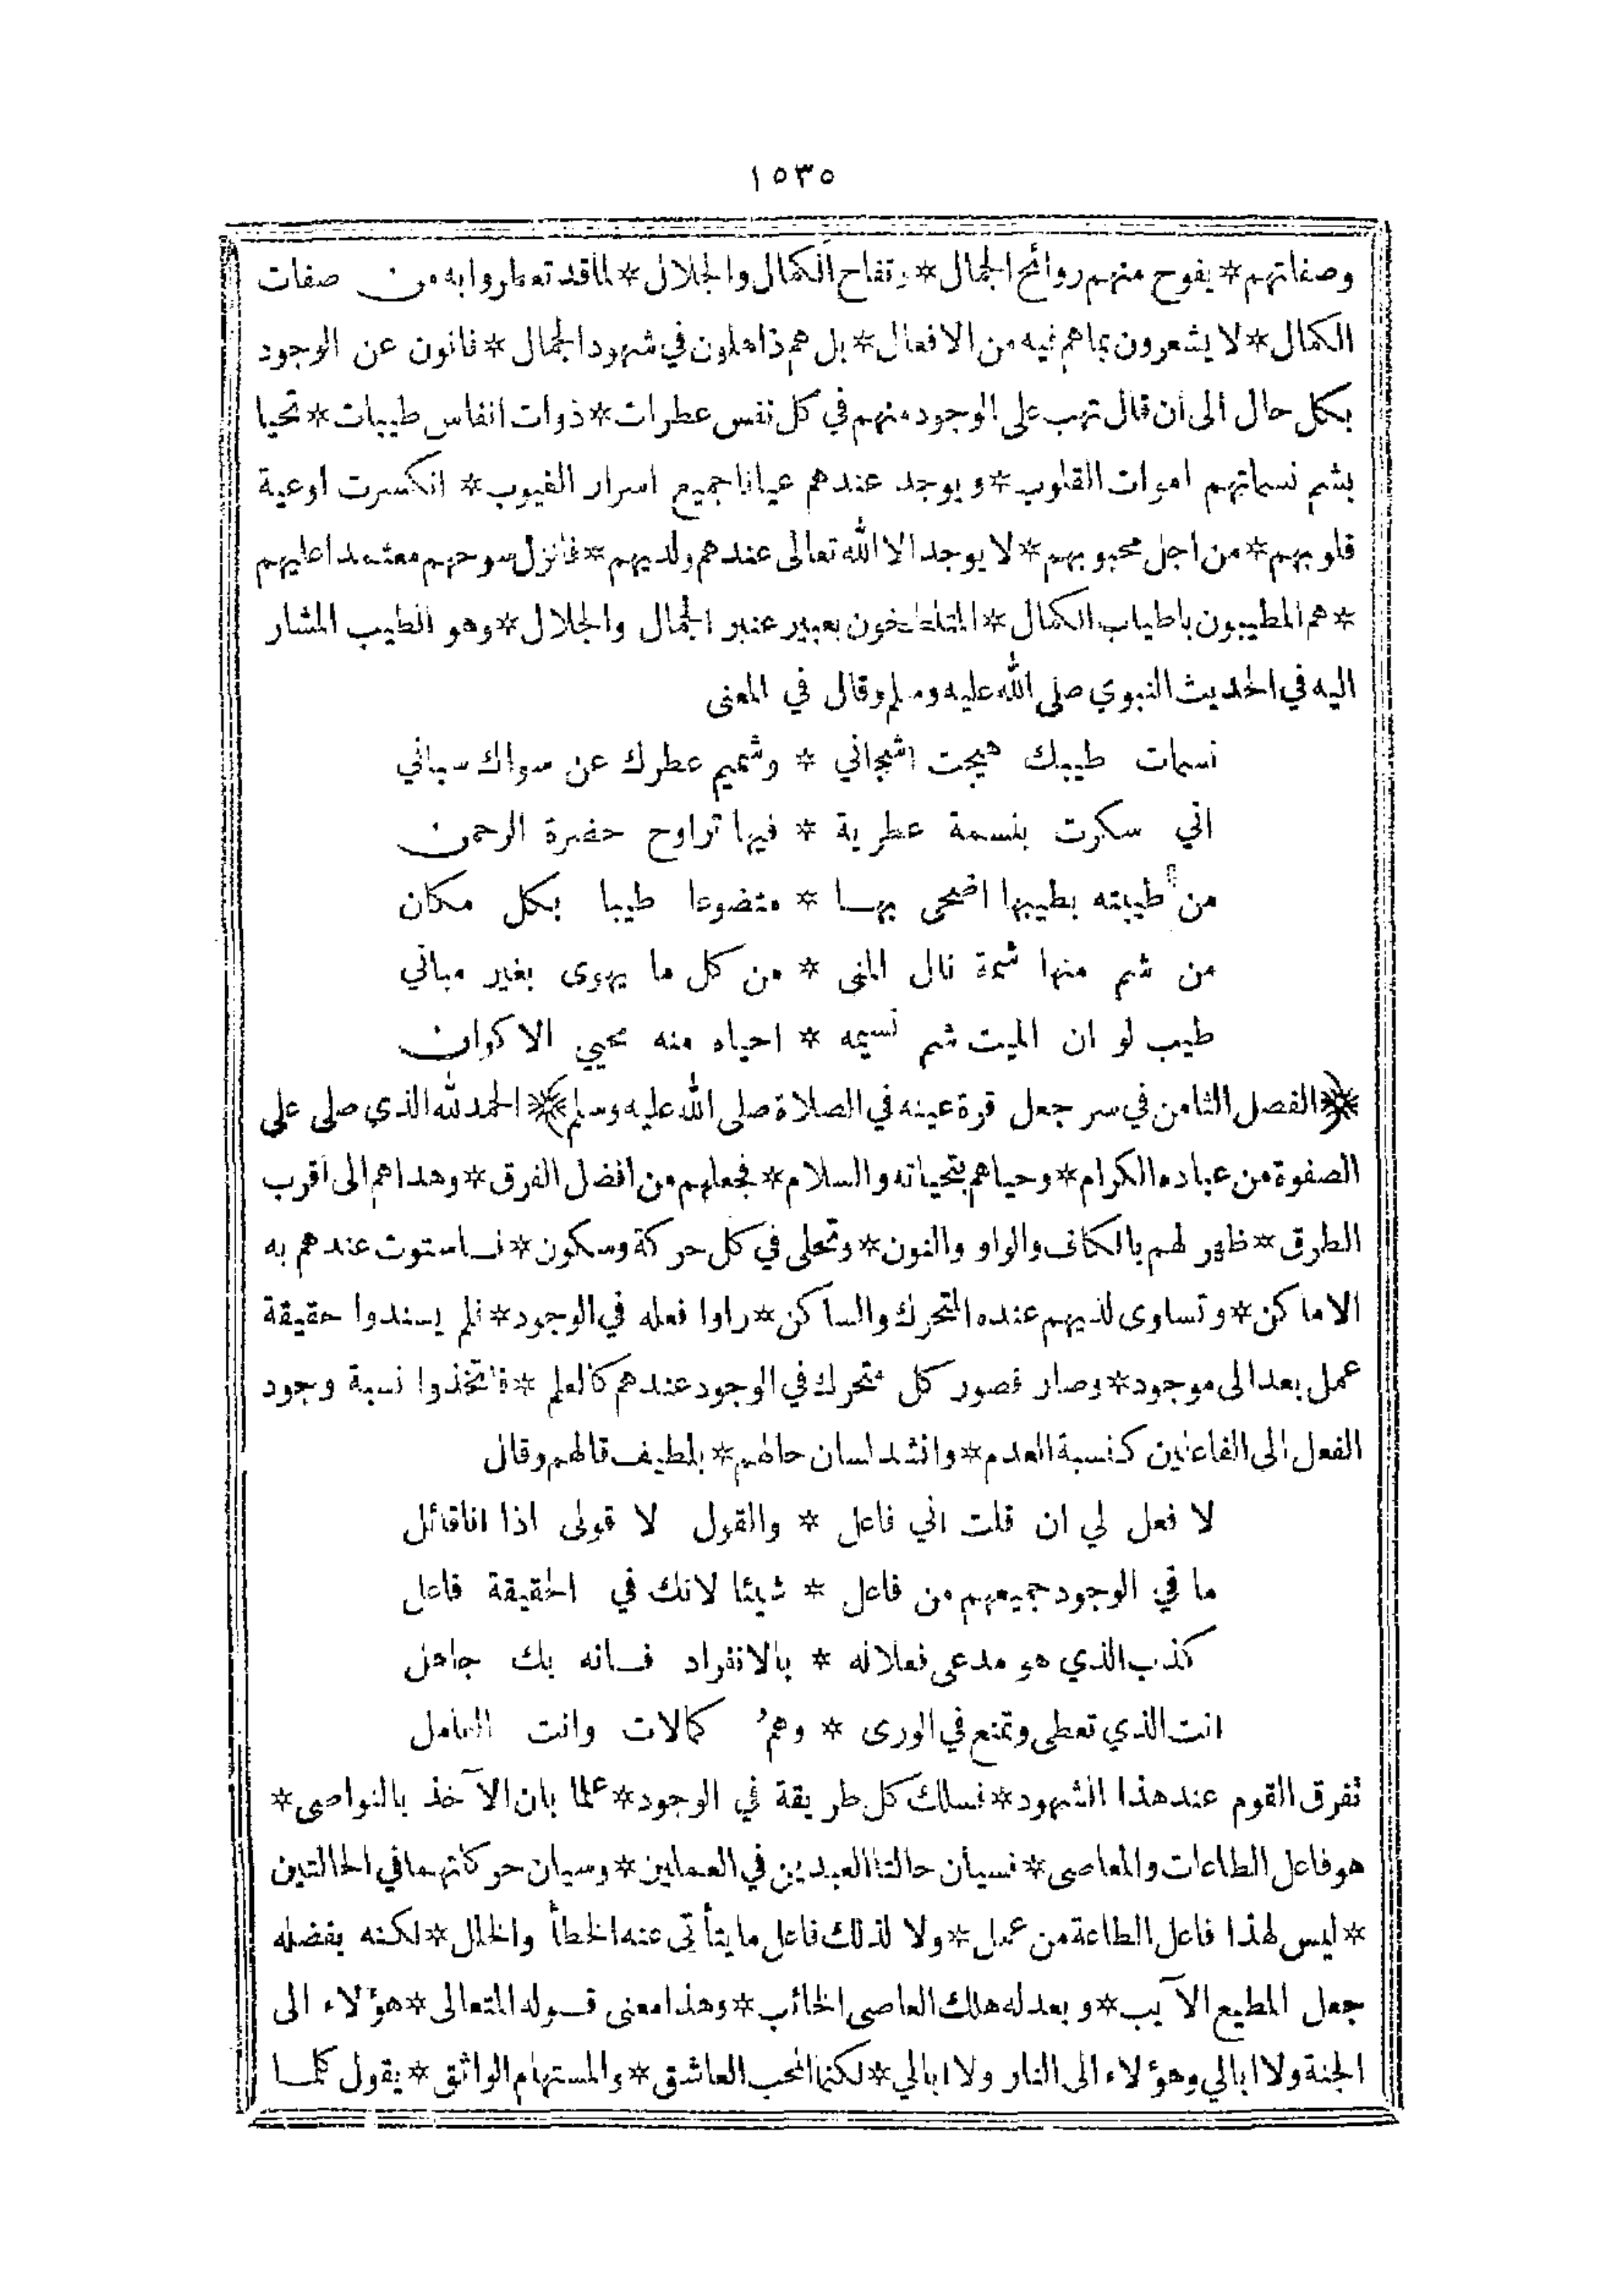 ١٥٣٥
وصفاتهم * يفوح منهم روائح الجمال * وتفاح الكمال والجلال * لما قد تعطروا به من صفات
الكمال * لا يشعرون بما هم فيه من الافعال * بل هم ذاهلون في شهود الجمال * فانون عن الوجود
بكل حال الى ان قال تهب على الوجود منهم في كل نفس عطرات * ذوات انفاس طيبات * تحيا
بشم نسماتهم اموات القلوب * ويوجد عندهم عيانا جميع اسرار الغيوب * انكسرت اوعية
قلوبهم * من اجل محبوبهم * لا يوجد الا الله تعالى عندهم ولديهم * فانزل بسوحهم معتمدا عليهم
* هم المطيبون باطياب الكمال * المتلطخون بعبير عنبر الجمال والجلال * وهو الطيب المشار
اليه في الحديث النبوي صلى الله عليه وسلم وقال في المعنى
نسمات طيبك هيجت اشجاني * وشميم عطرك عن سواك سباني
اني سكرت بنسمة عطرية * فيها تراوح حضرة الرحمن
من طيبته بطيبها اضحى بها * متضوعا طيبا بكل مكان
من شم منها شمة نال المنى * من كل ما يهوى بغير مباني
طيب لو ان الميت شم نسيمه * احياه منه محيي الاكوان
﴿الفصل الثامن في سر جعل قرة عينه في الصلاة صلى الله عليه وسلم﴾ الحمد لله الذي صلى على
الصفوة من عباده الكرام * وحياهم بتحياته والسلام * فجعلهم من افضل الفرق * وهداهم الى اقرب
الطرق * ظهر لهم بالكاف والواو والنون * وتحلى في كل حركة وسكون * فاستوت عندهم به
الاماكن * وتساوى لديهم عنده المتحرك والساكن * راوا فعله في الوجود * فلم يسندوا حقيقة
عمل بعد الى موجود * وصار فصور كل متحرك في الوجود عندهم كالعلم * فاتخذوا نسبة وجود
الفعل الى الفاعلين كنسبة العدم * وانشد لسان حالهم * بلطيف قالهم وقال
لا فعل لي ان قلت اني فاعل * والقول لا قولى اذا انا قائل
ما في الوجود جميعهم من فاعل * شيئا لانك في الحقيقة فاعل
كذب الذي هو مدعى فعلا له * بالانفراد فانه بك جاهل
انت الذي تعطى وتمنع في الورى * وهمُ كمالات وانت العامل
تفرق القوم عند هذا الشهود * فسلك كل طريقة في الوجود * علما بان الآخذ بالنواصى *
هو فاعل الطاعات والمعاصى * فسيان حالتا العبدين في العملين * وسيان حركاتهما في الحالتين
* ليس لهذا فاعل الطاعة من عمل * ولا لذلك فاعل ما يتأتى عنه الخطأ والخلل * لكنه بفضله
جعل المطيع الآيب * وبعدله هلك العاصى الخائب * وهذا معنى قوله المتعالى * هؤلاء الى
الجنة ولا ابالي وهؤلاء الى النار ولا ابالي * لكنما المحب العاشق * والمستهام الواثق * يقول كلما